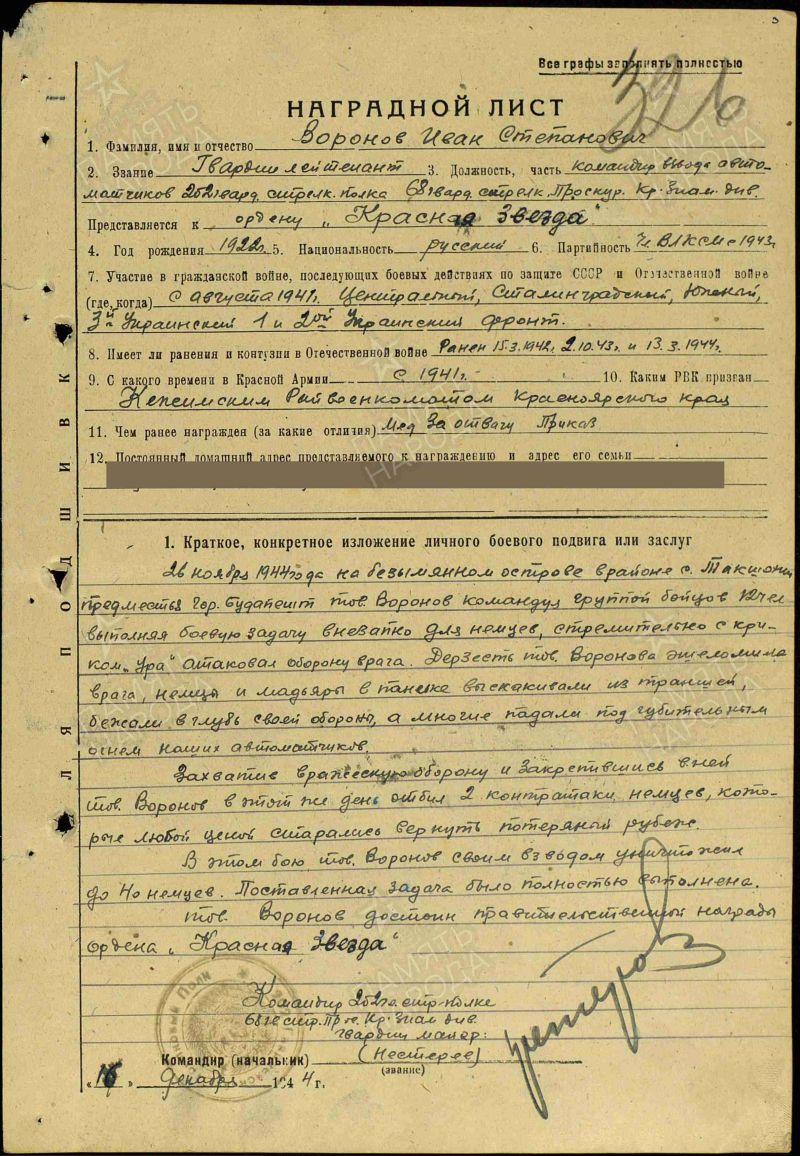 Все графы заполнять полностью
326
НАГРАДНОЙ ЛИСТ
1. Фамилия, имя и отчество Воронов Иван Степанович
2. Звание Гвардии лейтенант 3. Должность, часть командир взвода авто-
матчиков 252 гвард. стрелк. полка 68 гвард. стрелк. Проскур. Кр. Знам. див.
Представляется к ордену „Красная Звезда"
4. Год рождения 1922г. 5. Национальность русский 6. Партийность Чл ВЛКСМ с 1943г
7. Участие в гражданской войне, последующих боевых действиях по защите СССР и Отечественной войне
(где, когда) С августа 1941г. Центральный, Сталинградский, Южный,
3й Украинский 1 и 2ой Украинский фронт.
8. Имеет ли ранения и контузии в Отечественной войне Ранен 15.3.1942, 2.10.43г. и 13.3.1944г.
9. С какого времени в Красной Армии с 1941г. 10. Каким РВК призван
Кежимским Райвоенкоматом Красноярского края
11. Чем ранее награжден (за какие отличия) Мед За отвагу Приказ
12. Постоянный домашний адрес представляемого к награждению и адрес его семьи
1. Краткое, конкретное изложение личного боевого подвига или заслуг
26 ноября 1944 года на безымянном острове в районе с. Такшонь
предместья гор. Будапешт тов. Воронов командуя группой бойцов 12 чел
выполняя боевую задачу внезапно для немцев, стремительно с кри-
ком „Ура" атаковал оборону врага. Дерзость тов. Воронова ошеломила
врага, немцы и мадьяры в панике выскакивали из траншей,
бежали в глубь своей обороны, а многие падали под губительным
огнем наших автоматчиков.
Захватив вражескую оборону и закрепившись в ней
тов. Воронов в этот же день отбил 2 контратаки немцев, кото-
рые любой ценой старались вернуть потеряный рубеж.
В этом бою тов. Воронов своим взводом уничтожил
до 40 немцев. Поставленная задача было полностью выполнена.
тов. Воронов достоин правительственной награды
ордена „Красная Звезда"
Командир 252 гв. стр. полка
68 гв стр. Прос. Кр. Знам див.
гвардии майор:
Командир (начальник) (Нестеров)
(звание)
„16" декабря 1944 г.
ДЛЯ ПОДШИВКИ